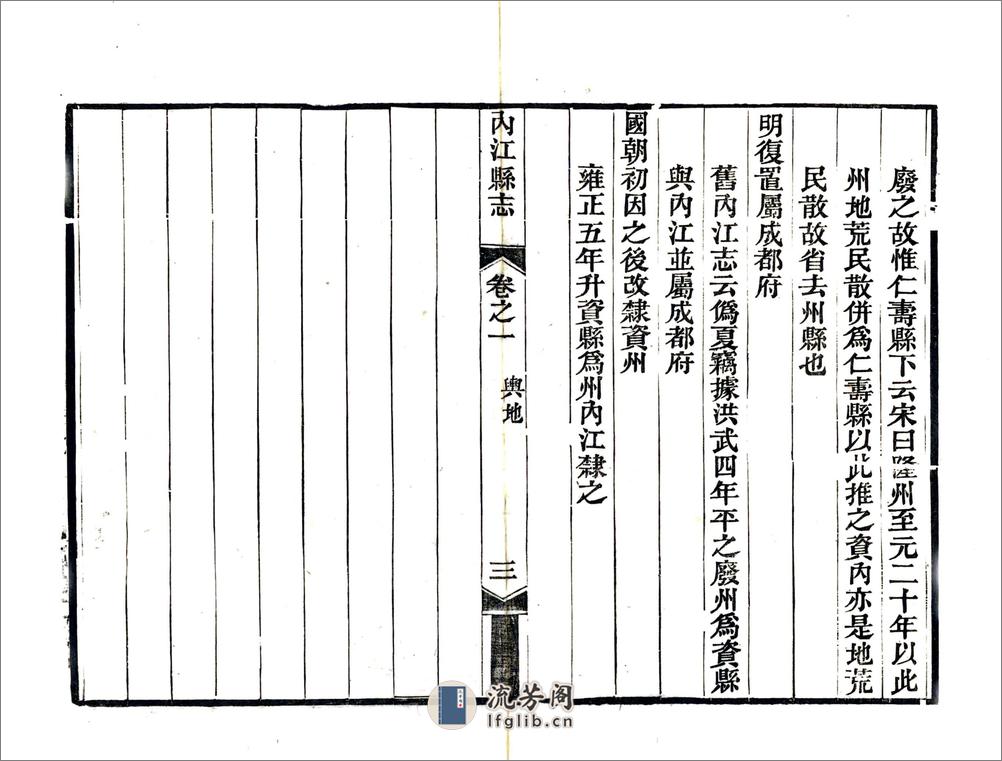 廢之故惟仁壽縣下云宋曰隆州至元二十年以此
州地荒民散併爲仁壽縣以此推之資內亦是地荒
民散故省去州縣也
明復置屬成都府
舊內江志云僞夏竊據洪武四年平之廢州爲資縣
與內江並屬成都府
國朝初因之後改隸資州
雍正五年升資縣爲州內江隸之
內江縣志
卷之一
輿地
三
流芳阁
lfglib.cn